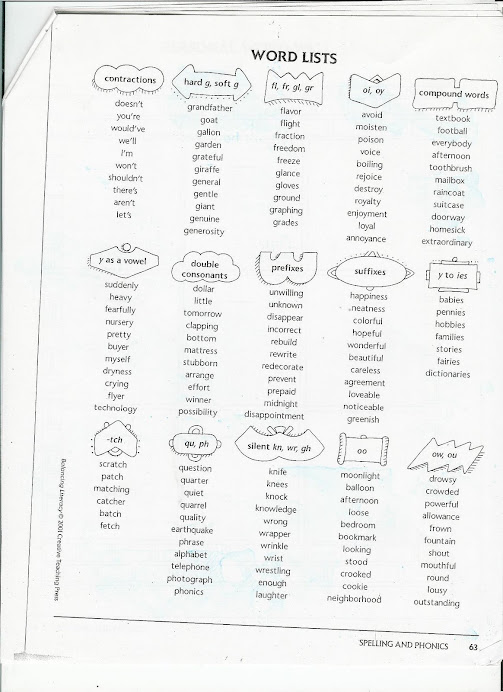 WORD LISTS
contractions
doesn't
you're
would've
we'll
I'm
won't
shouldn't
there's
aren't
let's
hard g, soft g
grandfather
goat
gallon
garden
grateful
giraffe
general
gentle
giant
genuine
generosity
fl, fr, gl, gr
flavor
flight
fraction
freedom
freeze
glance
gloves
ground
graphing
grades
oi, oy
avoid
moisten
poison
voice
boiling
rejoice
destroy
royalty
enjoyment
loyal
annoyance
compound words
textbook
football
everybody
afternoon
toothbrush
mailbox
raincoat
suitcase
doorway
homesick
extraordinary
y as a vowel
suddenly
heavy
fearfully
nursery
pretty
buyer
myself
dryness
crying
flyer
technology
double
consonants
dollar
little
tomorrow
clapping
bottom
mattress
stubborn
arrange
effort
winner
possibility
prefixes
unwilling
unknown
disappear
incorrect
rebuild
rewrite
redecorate
prevent
prepaid
midnight
disappointment
suffixes
happiness
neatness
colorful
hopeful
wonderful
beautiful
careless
agreement
loveable
noticeable
greenish
y to ies
babies
pennies
hobbies
families
stories
fairies
dictionaries
-tch
scratch
patch
matching
catcher
batch
fetch
qu, ph
question
quarter
quiet
quarrel
quality
earthquake
phrase
alphabet
telephone
photograph
phonics
silent kn, wr, gh
knife
knees
knock
knowledge
wrong
wrapper
wrinkle
wrist
wrestling
enough
laughter
oo
moonlight
balloon
afternoon
loose
bedroom
bookmark
looking
stood
crooked
cookie
neighborhood
ow, ou
drowsy
crowded
powerful
allowance
frown
fountain
shout
mouthful
round
lousy
outstanding
Balancing Literacy © 2001 Creative Teaching Press
SPELLING AND PHONICS 63